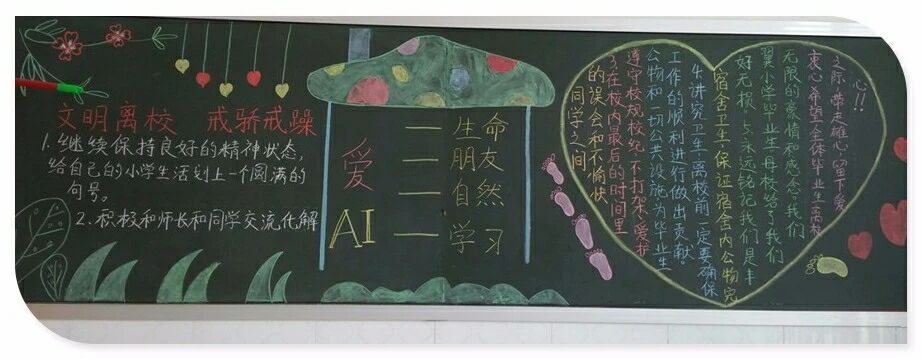 文明离校 戒骄戒躁
1.继续保持良好的精神状态,
给自己的小学生活划上一个圆满的
句号。
2.积极和师长和同学交流化解
爱
AI
一生命
一朋友
一自然
一学习
同学之间
的误会和不愉快
3.在校内最后的时间里
遵守校规校纪,不打架,爱护
公物和一切公共设施为毕业生
工作的顺利进行做出贡献。
4.讲究卫生,离校前一定要确保
宿舍卫生,保证宿舍内公物完
好无损,永远铭记我们是丰
翼小学毕业生母校给了我们
无限的豪情和感念。我们
衷心希望全体毕业生离校
之际,带走雄心,留下爱
心!!